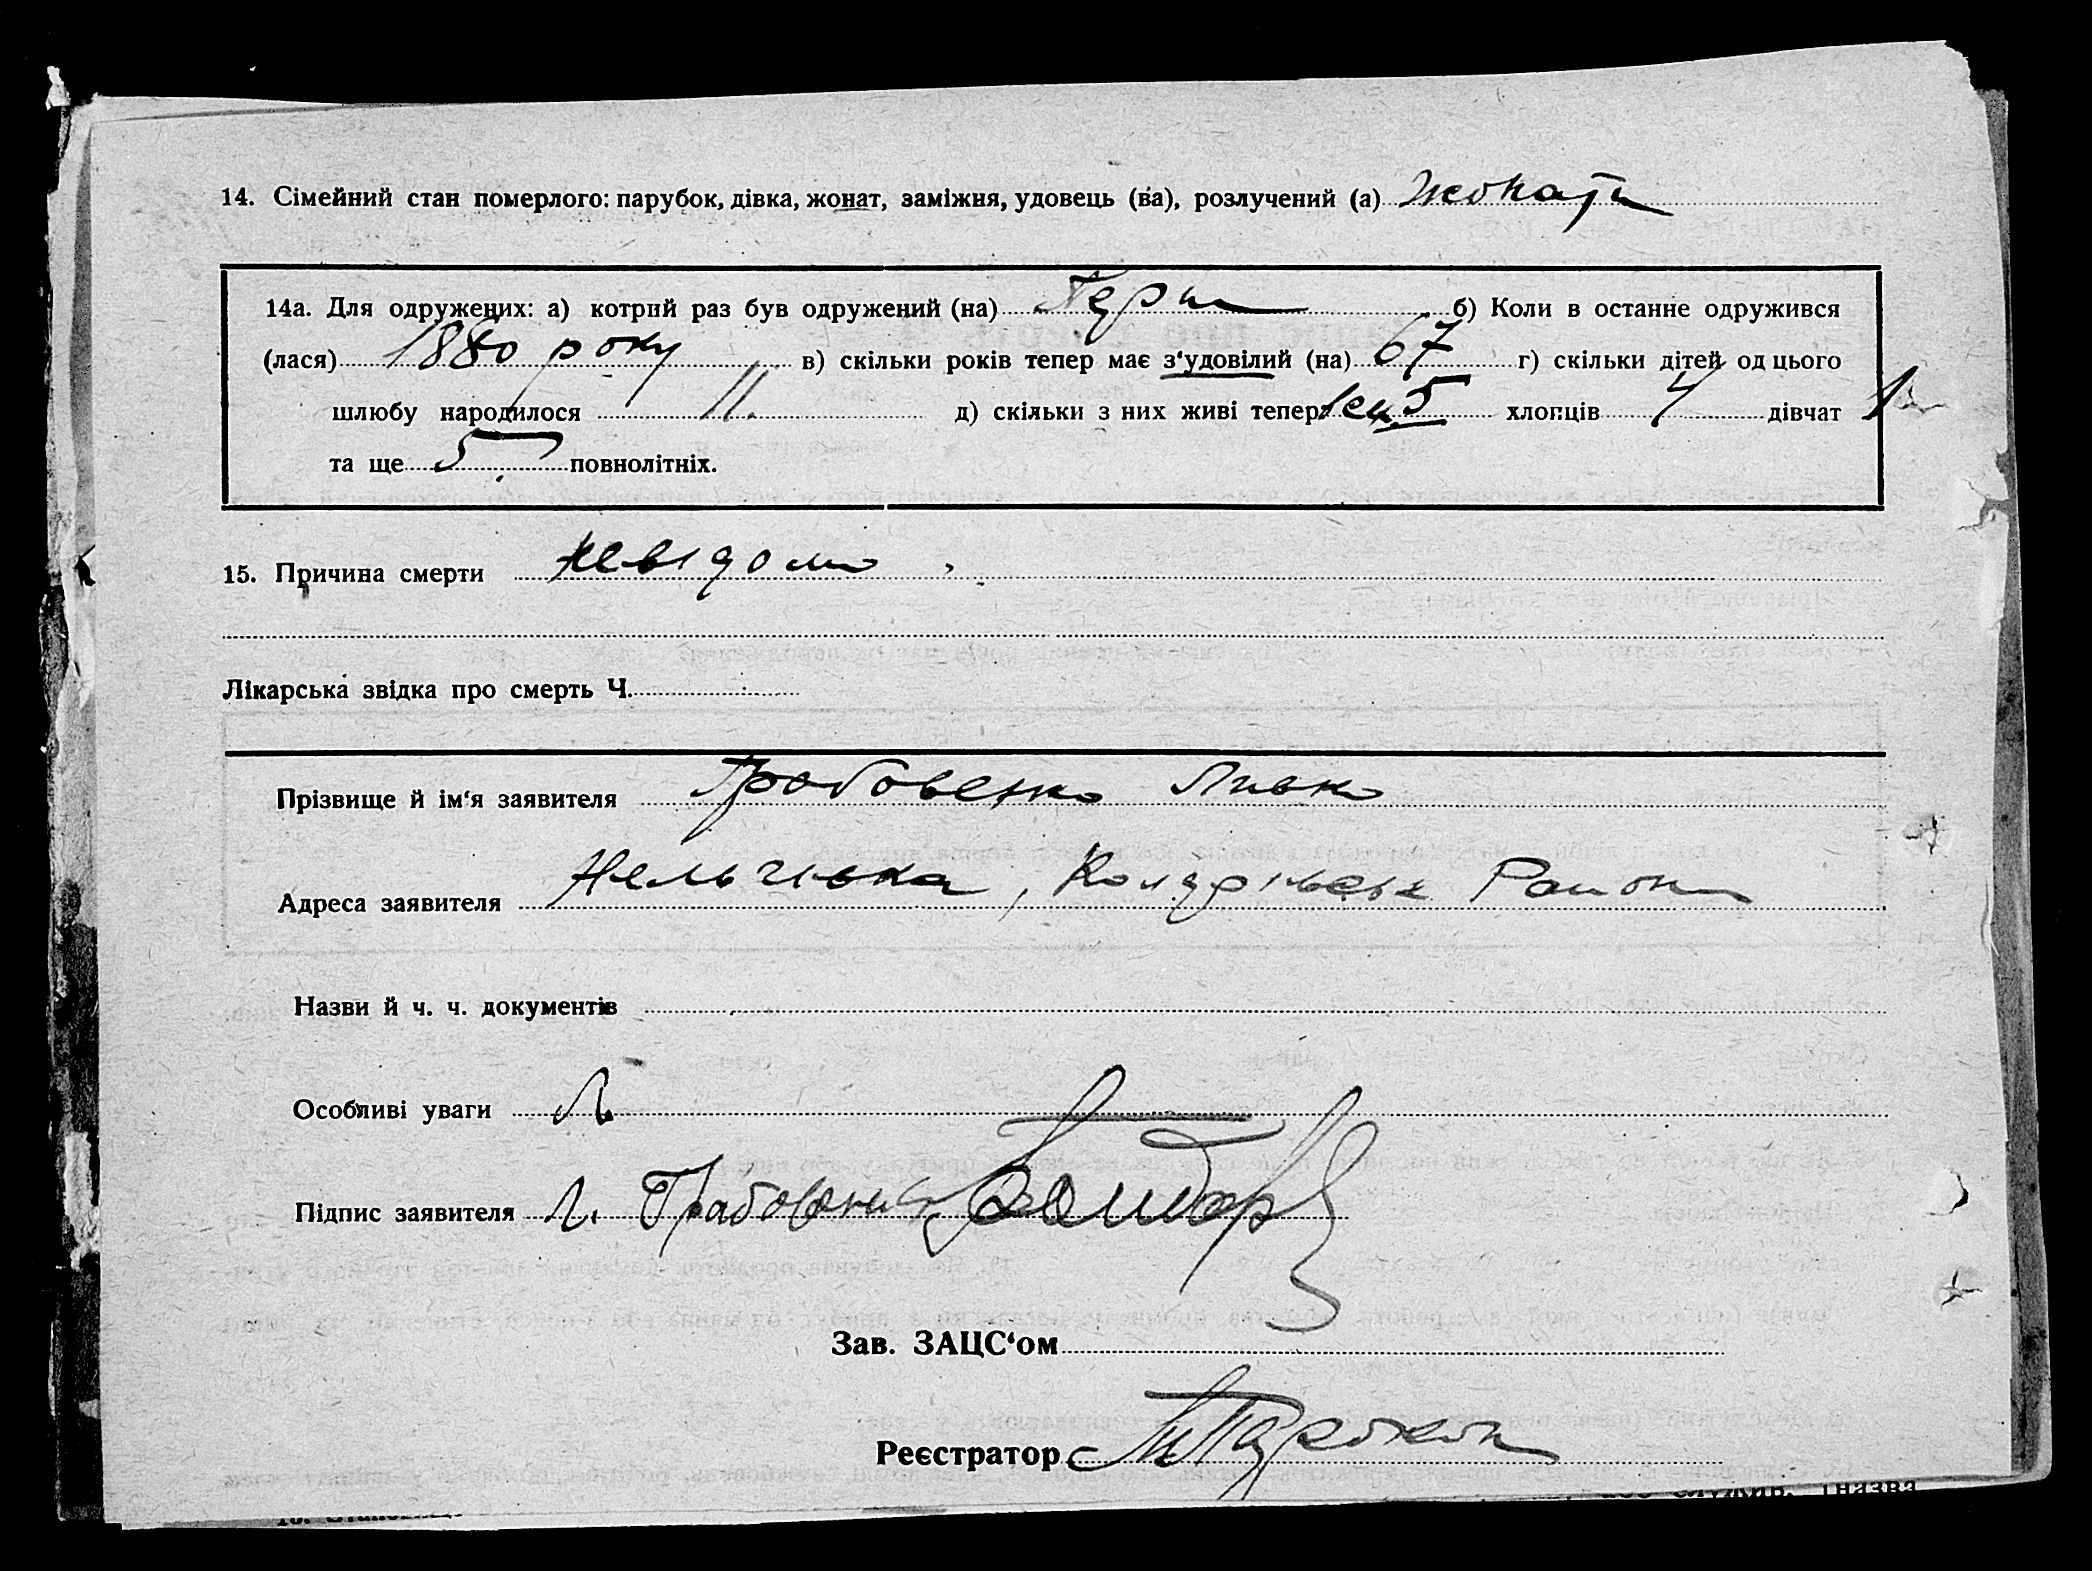 14. Сімейний стан померлого: парубок, дівка, жонат, заміжня, удовець (ва), розлучений (а) жонати
14а. Для одружених: а) котрий раз був одружений (на) Перш б) Коли в останнє одружився
(лася) 1880 року в) скільки років тепер має з‘удовілий (на) 67 г) скільки дітей од цього
шлюбу народилося 11. д) скільки з них живі тепер 5 хлопців 4 дівчат 1
та ще 5 повнолітніх.
15. Причина смерти невідомо
Лікарська звідка про смерть Ч.
Прізвище й ім‘я заявителя Грабовенко Ливко
Адреса заявителя Нельгівка, Район
Назви й ч. ч. документів
Особливі уваги Л
Підпис заявителя Л. Грабовенко
Зав. ЗАЦС‘ом
Реєстратор